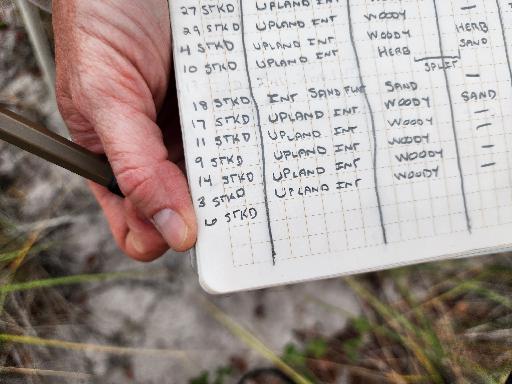 27 STKD UPLAND INT
29 STKD UPLAND INT WOODY –
4 STKD UPLAND INT WOODY HERB
10 STKD UPLAND INT HERB SAND
SPLIT
18 STKD INT SAND FLAT SAND –
17 STKD UPLAND INT WOODY SAND
11 STKD UPLAND INT WOODY –
9 STKD UPLAND INT WOODY –
14 STKD UPLAND INT WOODY –
3 STKD UPLAND INT WOODY –
6 STKD